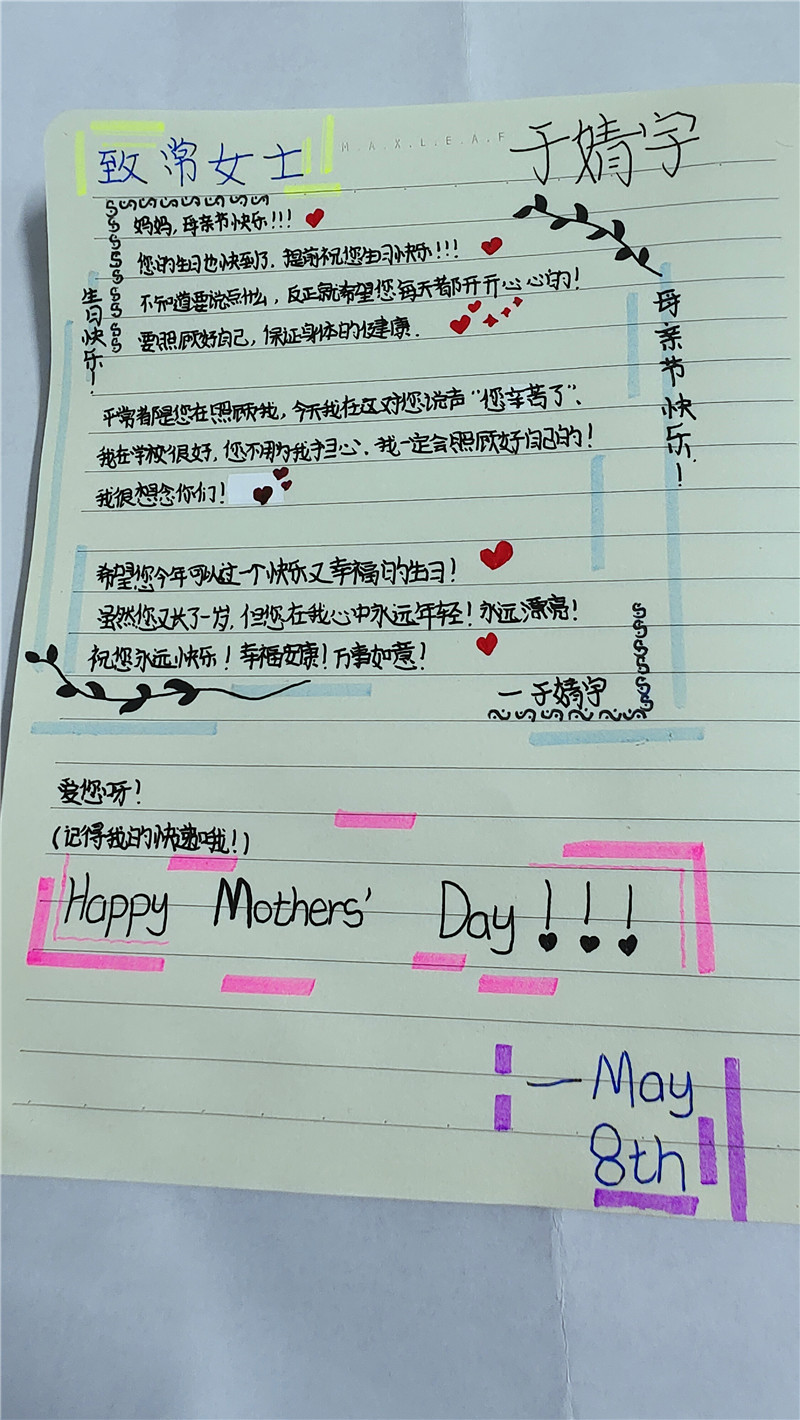 M.A.X.L.E.A.F
致常女士
于婧宇
妈妈，母亲节快乐！！！
您的生日也快到了，提前祝您生日快乐！！！
不知道要说点什么，反正就希望您每天都开开心心的！
要照顾好自己，保证身体的健康．
生日快乐！
母亲节快乐！
平常都是您在照顾我，今天我在这对您说声“您辛苦了”．
我在学校很好，您不用为我担心．我一定会照顾好自己的！
我很想念你们！
希望您今年可以过一个快乐又幸福的生日！
虽然您又长了一岁，但您在我心中永远年轻！永远漂亮！
祝您永远快乐！幸福安康！万事如意！
—于婧宇
爱您呀！
(记得我的快递哦！)
Happy Mothers' Day！！！
—May
8th